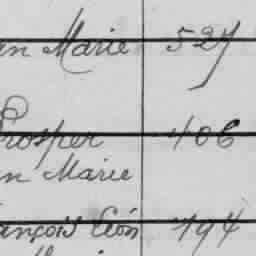 an Marie 527
Prosper 406
n Marie
ançois Léon 794